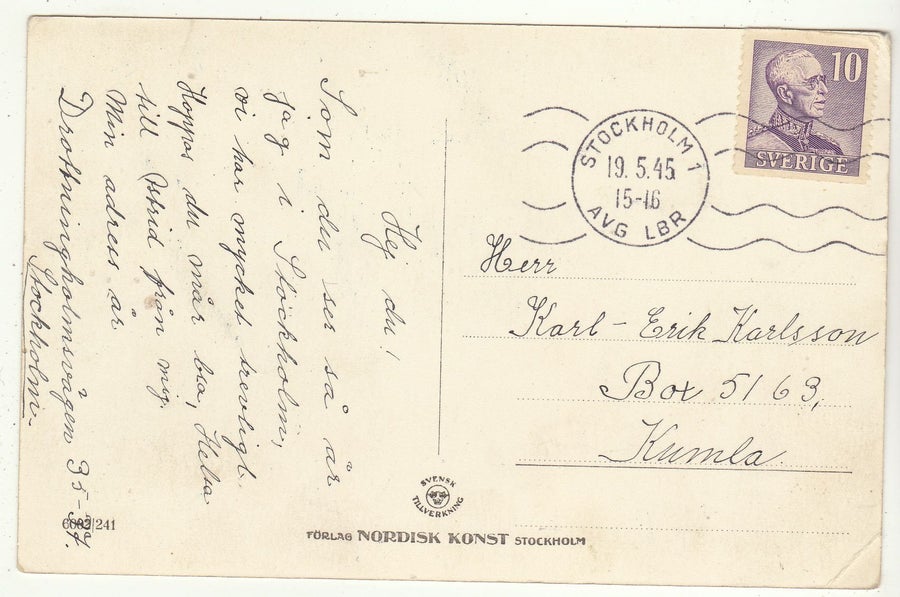 Hej du!
Som du ser så är
jag i Stockholm,
vi har mycket trevligt.
Hoppas du mår bra, Helsa
till Astrid från mig.
Min adress är
Drottningholmsvägen 35-37.
Stockholm.
6002/241
10
SVERIGE
STOCKHOLM 1
19. 5. 45
15-16
AVG LBR
Herr
Karl-Erik Karlsson
Box 5163,
Kumla
SVENSK
TILLVERKNING
FÖRLAG NORDISK KONST STOCKHOLM